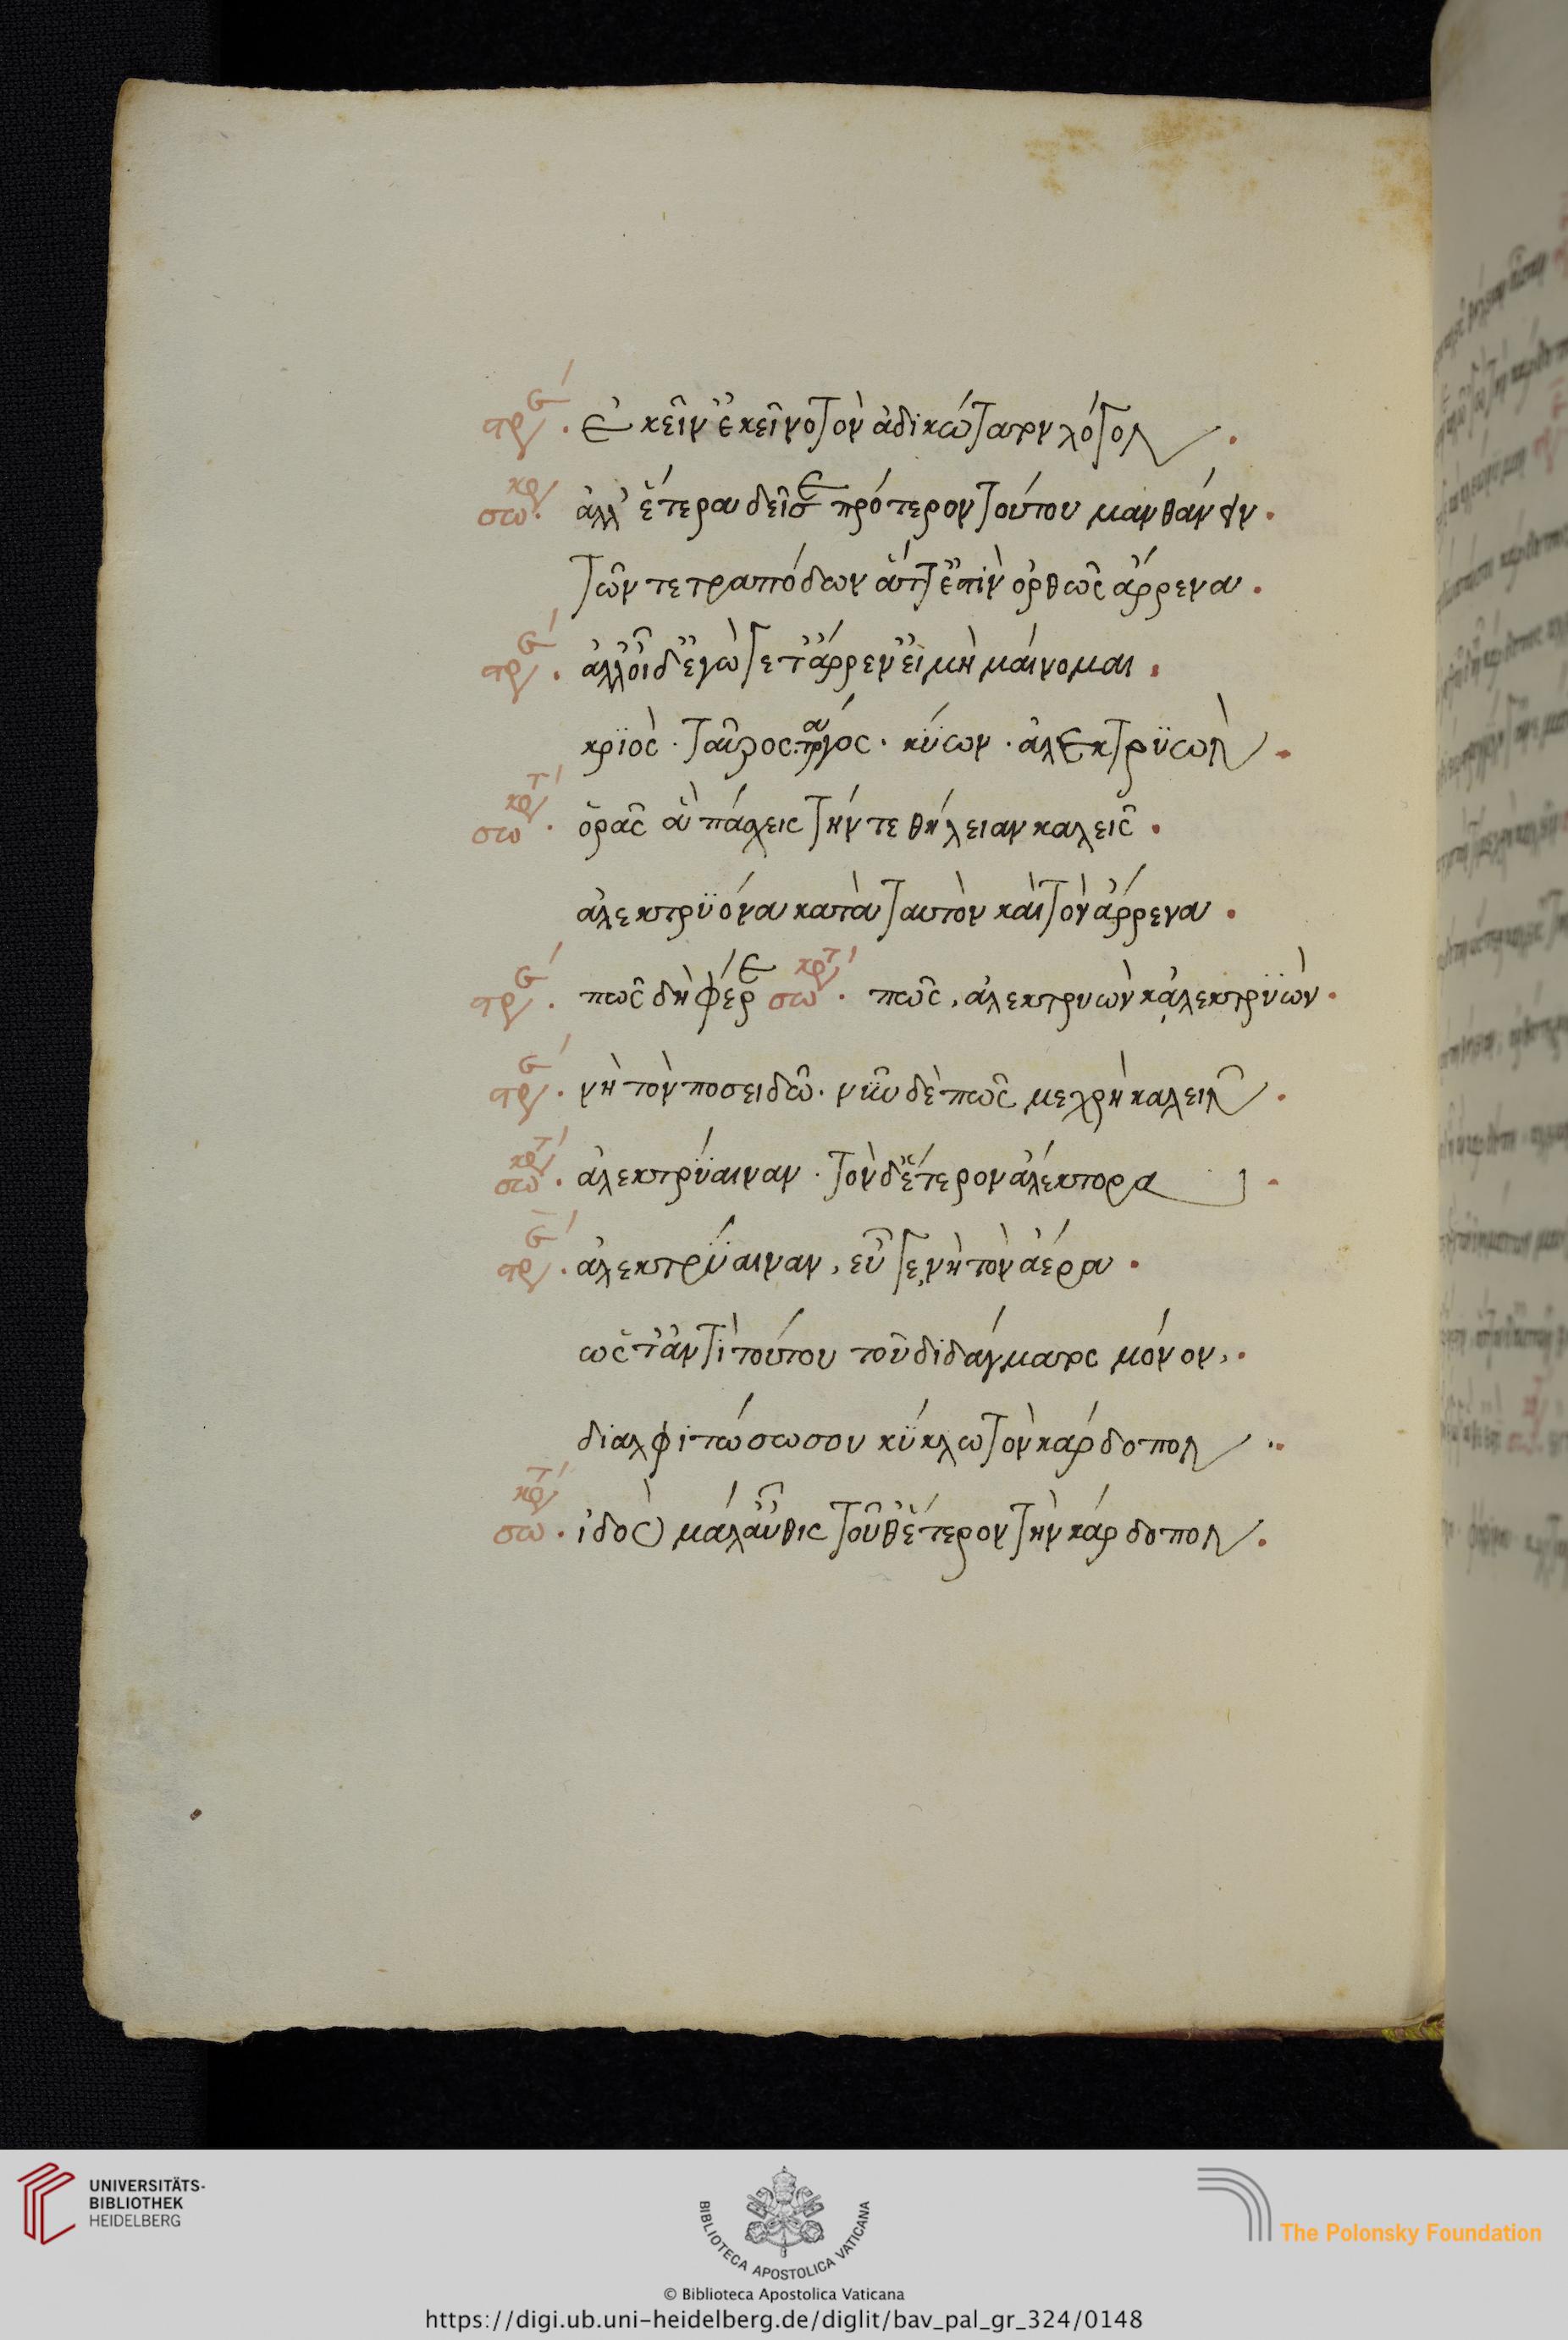 στρε´. ἐκεῖν' ἐκεῖνο τὸν ἀδικώτατον λόγον.
σωκρ. ἀλλ' ἕτερα δεῖ σε πρότερον τούτου μανθάνειν.
τῶν τετραπόδων ἅττ' ἐστὶν ὀρθῶς ἄρρενα.
στρε´. ἀλλ' οἶδ' ἔγωγε τ' ἄρρεν' εἰ μὴ μαίνομαι.
κρϊὸς· ταῦρος· τράγος· κΰων· ἀλεκτρϋὼν.
σωκρτ´. ὁρᾶς ἃ πάσχεις τήν τε θήλειαν καλεῖς.
ἀλεκτρϋόνα κατὰ ταυτὸν καὶ τὸν ἄρρενα.
στρε´. πῶς δὴ φέρε σωκρτ´. πῶς, ἀλεκτρυὼν κἀλεκτρϋὼν.
στρε´. νὴ τὸν ποσειδῶ· νῦν δὲ πῶς με χρὴ καλεῖν.
σωκρτ´. ἀλεκτρΰαιναν· τὸν δ' ἕτερον ἀλέκτορα.
στρε´. ἀλεκτρΰαιναν, εὖ γε νὴ τὸν ἀέρα.
ὥς τ' ἀντὶ τούτου τοῦ διδάγματος μόνον,.
διαλφιτώσω σου κΰκλω τὸν κάρδοπον..
σωκρτ´. ἰδοὺ μάλ' αὖθις τοῦθ' ἕτερον τὴν κάρδοπον.
UNIVERSITÄTS-
BIBLIOTHEK
HEIDELBERG
BIBLIOTECA APOSTOLICA VATICANA
The Polonsky Foundation
© Biblioteca Apostolica Vaticana
https://digi.ub.uni-heidelberg.de/diglit/bav_pal_gr_324/0148